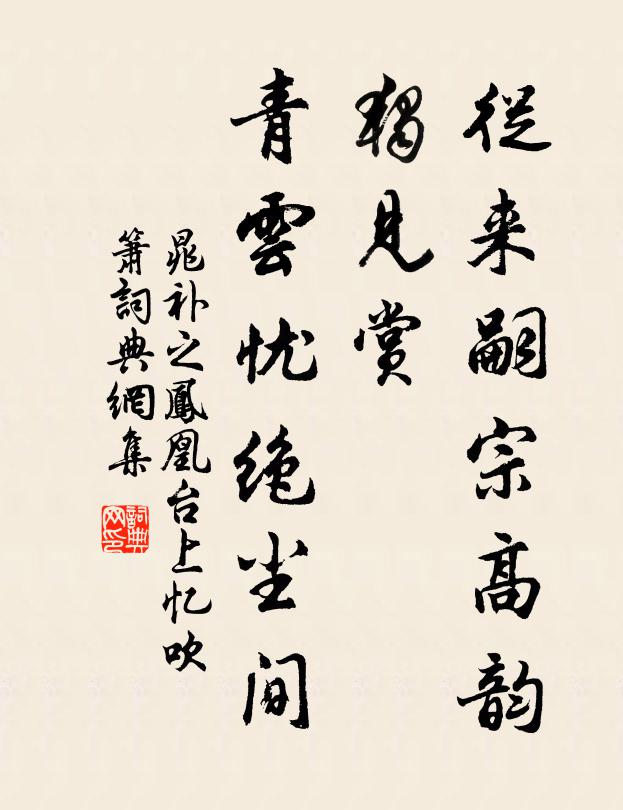 從来嗣宗高韵
獨見赏
青雲忧绝尘间
晁补之鳳凰台上忆吹
箫詞典網集
詞典
网印